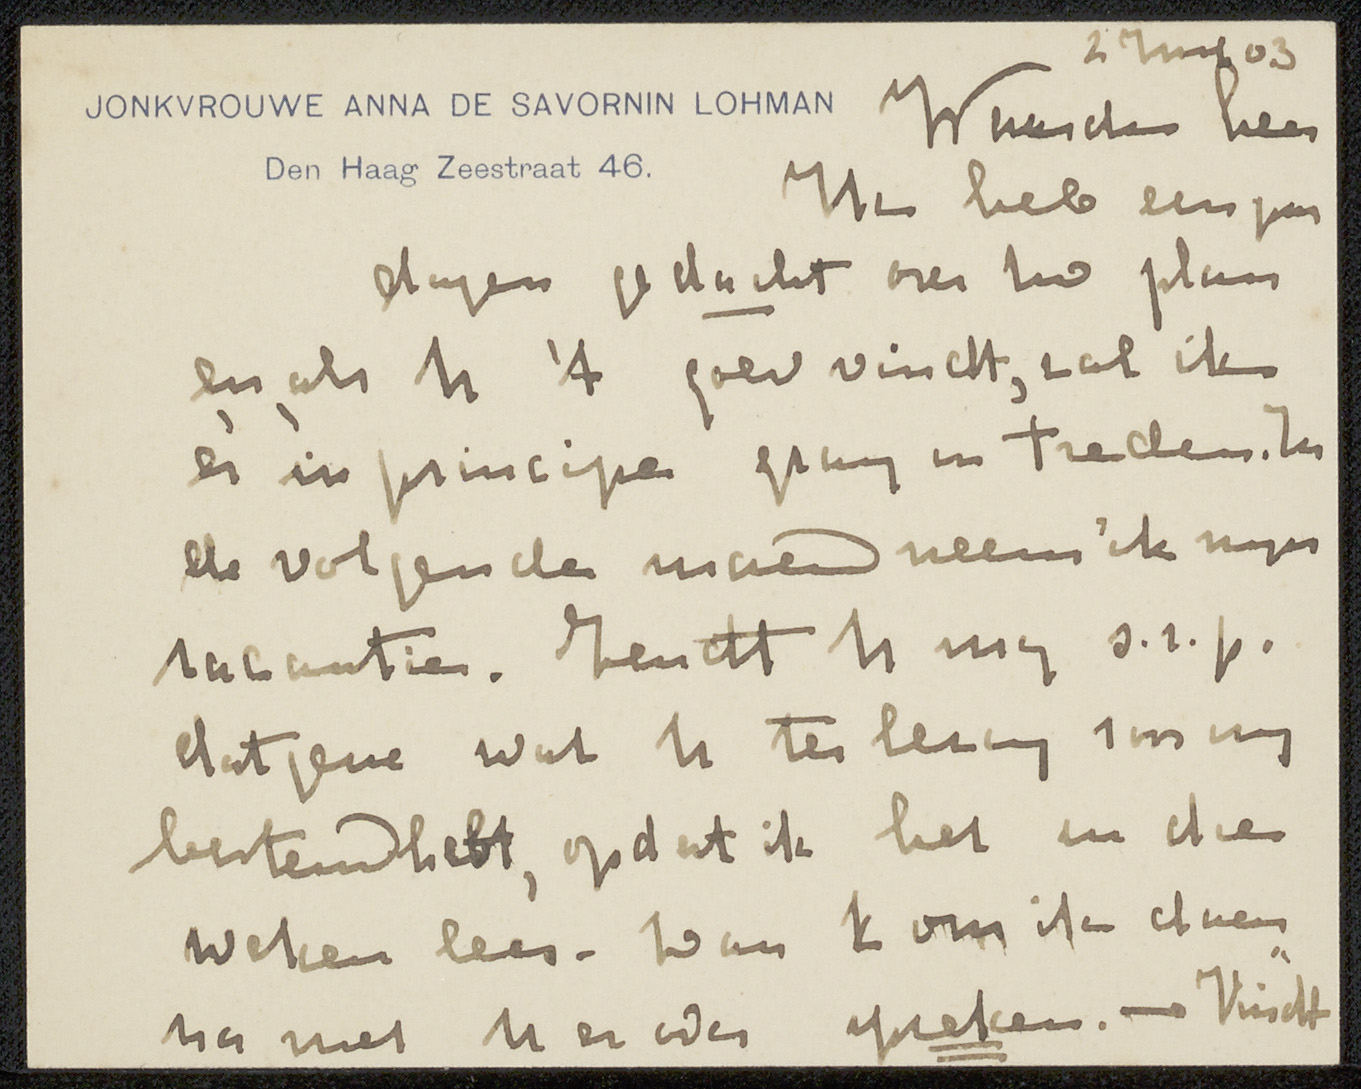 2 Juni 03
JONKVROUWE ANNA DE SAVORNIN LOHMAN
Den Haag Zeestraat 46.
Waarde heer
Ik heb een paar
dagen gedacht over uw plan
en als U 't goed vindt, zal ik
er in principe graag in treden. In
de volgende maand neem ik mijn
vacantie. Zendt U mij s.v.p.
datgene wat U ter lezing voor mij
bestemd hebt, opdat ik het in die
weken lees. - Dan kom ik daar
na met U er over spreken. - Vindt